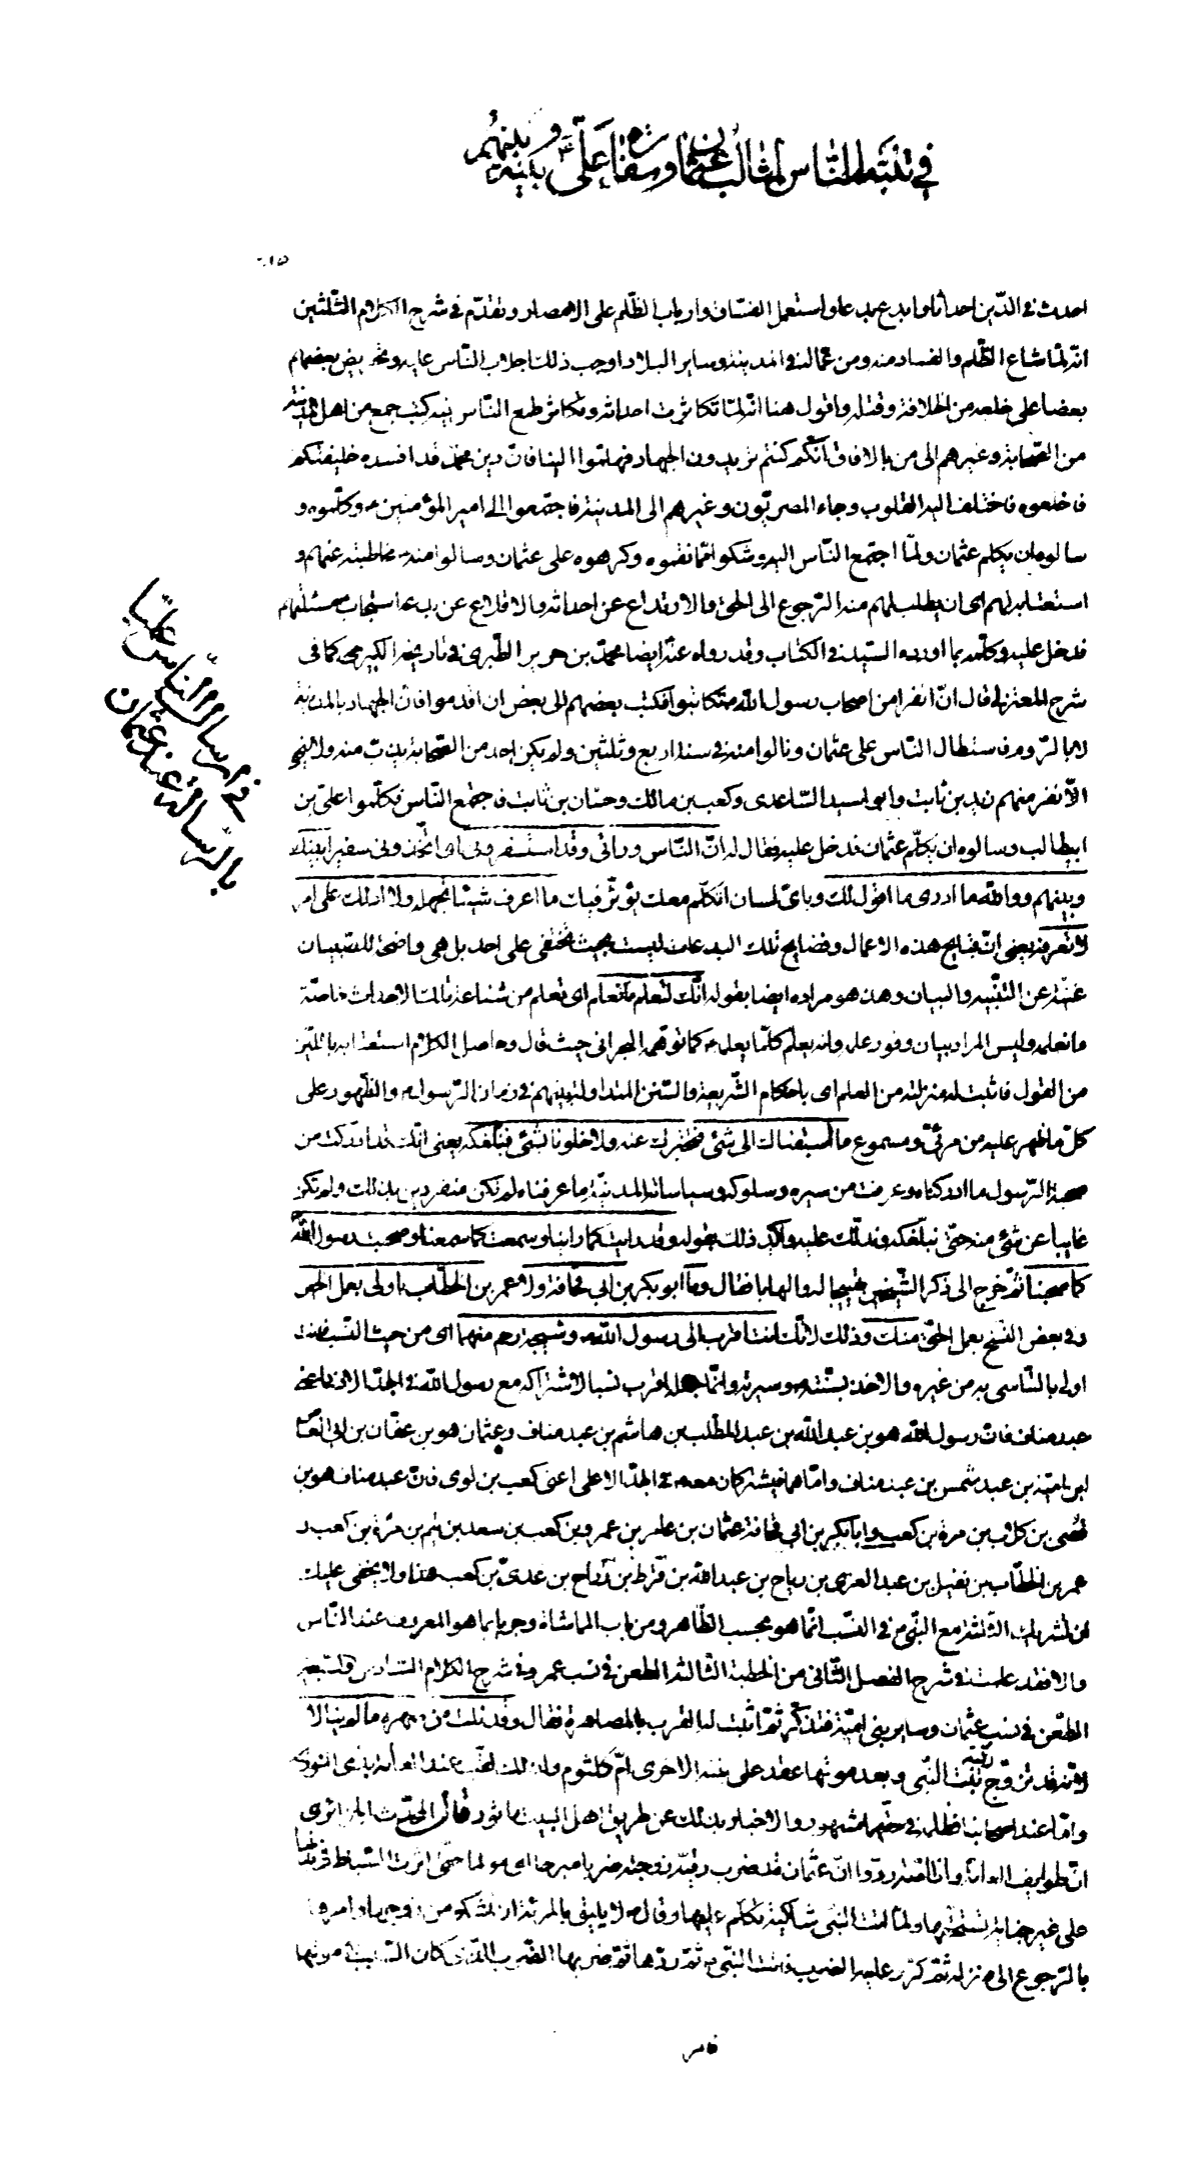 في تثبّط الناس لمثالب عثمان وسفارة عليّ ع بينه وبينهم
احدث في الدّين احداثا وابدع بدعا واستعمل الفسّاق وارباب الظّلم على الامصار وتقدّم في شرح الكلام الثّلثين
انّه لمّا شاع الظّلم والفساد منه ومن عمّاله في المدينة وساير البلاد اوجب ذلك اجلاب النّاس عليه وتحريض بعضهم
بعضا على خلعه من الخلافة وقتله واقول هنا انّه لمّا تكاثرت احداثه وتكاثر طمع النّاس فيه كتب جمع من اهل المدينة
من الصّحابة وغيرهم الى من بالافاق انّكم كنتم تريدون الجهاد فهلمّوا الينا فانّ دين محمّد قد افسده خليفتكم
فاخلعوه فاختلف اليه القلوب وجاء المصريّون وغيرهم الى المدينة فاجتمعوا الى امير المؤمنين ع وكلّموه و
سالوه ان يكلم عثمان ولمّا اجتمع النّاس اليه وشكوا ممّا نقموه وكرهوه على عثمان وسالوا منه ع مخاطبته عنهم و
استعتابه لهم اى ان يطلب لهم منه الرّجوع الى الحق والارتداع عن احداثه والاقلاع عن بدعه استجاب ع مسئلتهم
فدخل عليه وكلّمه بما اورده السّيد في الكتاب وقد رواه عنه ايضا محمّد بن جرير الطّبرى في تاريخه الكبير كما فى
شرح المعتزلي قال انّ نفرا من اصحاب رسول الله ص تكاتبوا فكتب بعضهم الى بعض ان اقدموا فانّ الجهاد بالمدينة
لا بالرّوم فاستطال النّاس على عثمان ونالوا منه في سنة اربع وثلثين ولم يكن احد من الصّحابة يذبّ عنه ولا ينهى
الّا نفر منهم زيد بن ثابت وابو اسيد السّاعدى وكعب بن مالك وحسّان بن ثابت فاجتمع النّاس فكلّموا علىّ بن
ابيطالب وسالوه ان يكلّم عثمان فدخل عليه فقال له انّ النّاس ورائى وقد استسفرونى اى اتّخذونى سفيرا بينك
وبينهم ووالله ما ادرى ما اقول لك وباىّ لسان اتكلّم معك يؤثّر فيك ما اعرف شيئا تجهله ولا ادلك على امر
لا تعرفه يعنى انّ قبايح هذه الاعمال وفضايح تلك البدعات ليست بحيث تخفى على احد بل هى واضحة للصّبيان
غنيّة عن التّنبيه والبيان وهذا هو مراده ايضا بقوله انّك لتعلم ما نعلم اى تعلم من شناعة تلك الاحداث خاصّة
ما نعلمه وليس المراد بيان وفور علمه وانه يعلم كلّما يعلمه كما توهّمه البحرانى حيث قال وحاصل الكلام استعتابه باللّين
من القول فاثبت له منزلته من العلم اى باحكام الشّريعة والسّنن المتداولة بينهم في زمان الرّسول ص والظّهور على
كلّ ما ظهر عليه من مرئىّ ومسموع ما سبقناك الى شئ فنخبرك عنه ولا خلونا بشئ فنبلّغكه يعنى انّك قد ادركت من
صحبة الرّسول ما ادركناه وعرفت من سيره وسلوكه وسياساته المدنيّة ما عرفناه لم نكن منفردين بذلك ولم تكن
غايبا عن شئ منه حتّى نبلّغكه وندلّك عليه واكّد ذلك بقوله وقد رايت كما راينا وسمعت كما سمعنا وصحبت رسول الله
كما صحبنا ثمّ خرج الى ذكر الشّيخين تهييجا له والهابا فقال وما ابو بكر بن ابي قحافة ولا عمر بن الخطّاب باولى بعمل الخير
وفي بعض النّسخ بعمل الحقّ منك وذلك لانّك انت اقرب الى رسول الله ص وشيجة رحم منهما اى من حيث النّسب فانت
اولى بالتّاسى به من غيره والاخذ بسنّته وسيرته وانّما جعله اقرب نسبا لاشتراكه مع رسول الله في الجدّ الادنى اعنى
عبد مناف فانّ رسول الله هو بن عبد الله بن عبد المطّلب بن هاشم بن عبد مناف وعثمان هو بن عفّان بن ابي العاص
ابن اميّة بن عبد شمس بن عبد مناف وامّا هما فيشتركان معه في الجدّ الاعلى اعنى كعب بن لوى فانّ عبد مناف هو بن
قصى بن كلاب بن مرة بن كعب وابا بكر بن ابي قحافة عثمان بن عامر بن عمرو بن كعب بن سعد بن تيم بن مرّة بن كعب و
عمر بن الخطّاب بن نفيل بن عبد العزى بن رياح بن عبد الله بن قرط بن رزاح بن عدىّ بن كعب هذا ولا يخفى عليك
ان تشريك الثّلثة مع النّبى ص في النّسب انّما هو بحسب الظّاهر ومن باب المماشاة وجريا بما هو المعروف عند النّاس
والا فقد علمت في شرح الفصل الثّانى من الخطبة الثّالثة الطعن في نسب عمر وفي شرح الكلام السّادس والسّبعين
الطّعن في نسب عثمان وساير بنى اميّة فتذكّر ثمّ اثبت له القرب بالمصاهرة فقال وقد نلت من صهره ما لم ينالا
لانّه قد تزوّج رقيّة بنت النّبى وبعد موتها عقد على بنته الاخرى امّ كلثوم ولذلك لقّب عند العامّة بذى النّورين
وامّا عند اصحابنا فظلمه في حقّهما مشهور والاخبار بذلك عن طريق اهل البيت ماثور قال المحدّث الجزائرى
انّ طوايف العامّة والخاصّة رووا انّ عثمان قد ضرب رقيّة زوجته ضربا مبرحا اى مولما حتّى اثرت السّياط في بدنها
على غير جناية تستحقّها ولمّا اتت النبى شاكية تكلّم عليها وقال لا يليق بالمرئة ان تشكو من زوجها وامرها
بالرّجوع الى منزله ثمّ كرّر عليها الضرب فاتت النّبى ص ثمّ ردّها ثمّ ضربها الضّرب الّذى كان السّبب في موتها
في ارسال النّاس عليّا
بالرّسالة عند عثمان